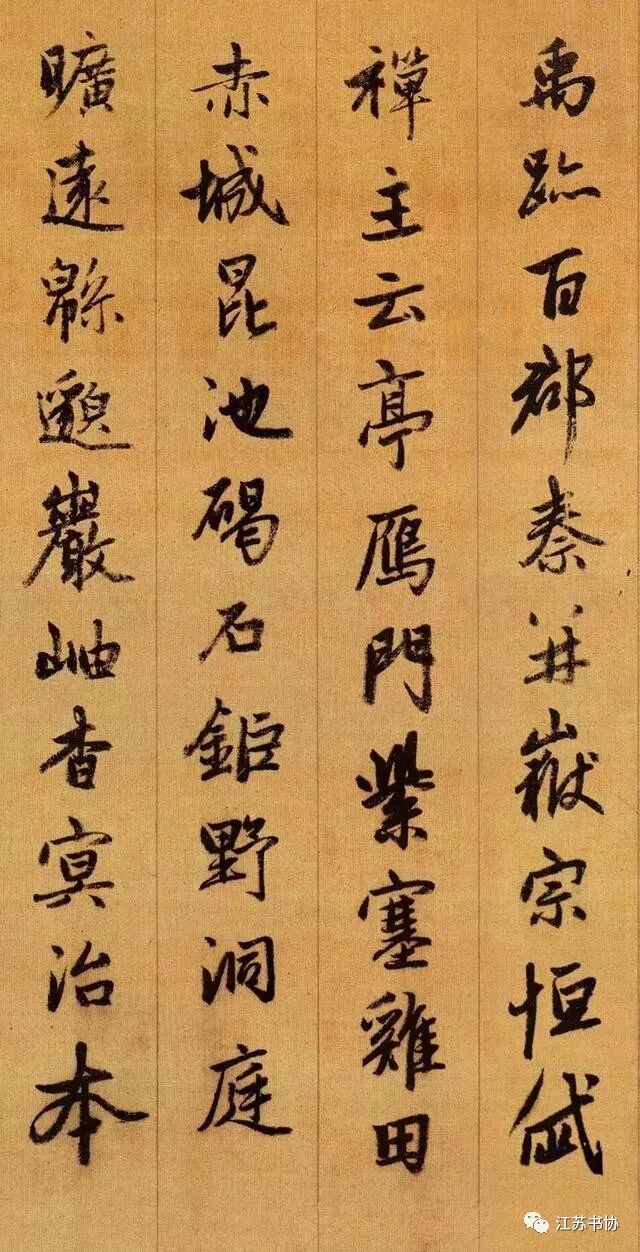 禹跡百郡秦并嶽宗恒岱
禪主云亭鴈門紫塞雞田
赤城昆池碣石鉅野洞庭
曠遠緜邈巖岫杳冥治本
江苏书协